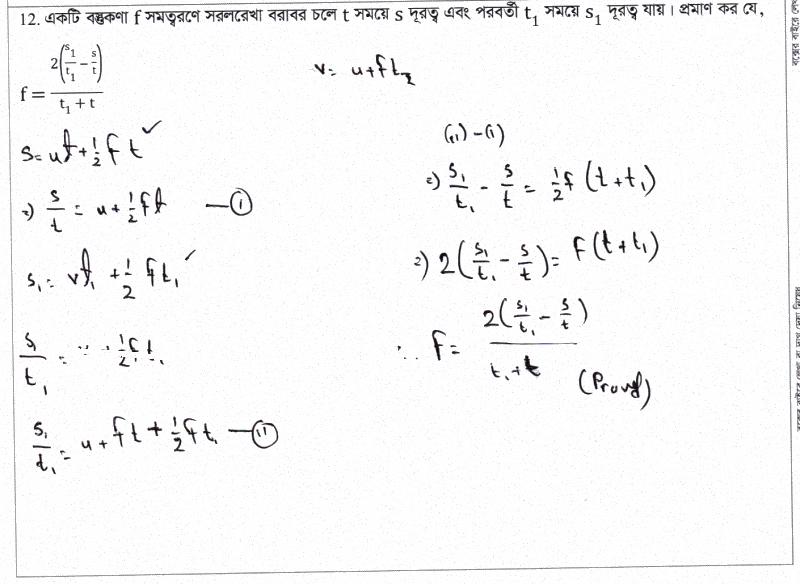 12. একটি বস্তুকণা f সমত্বরণে সরলরেখা বরাবর চলে t সময়ে s দূরত্ব এবং পরবর্তী t₁ সময়ে s₁ দূরত্ব যায়। প্রমাণ কর যে,
f = 2(s₁/t₁ − s/t) / (t₁ + t)
v = u + ft
s = ut + 1/2 f t ✓
⇒) s/t = u + 1/2 ft — (i)
s₁ = vt₁ + 1/2 f t₁ ✓
s₁/t₁ = 1/2 f t₁
s₁/t₁ = u + ft + 1/2 f t₁ — (ii)
(ii) − (i)
⇒) s₁/t₁ − s/t = 1/2 f (t + t₁)
⇒) 2(s₁/t₁ − s/t) = f (t + t₁)
∴ f = 2(s₁/t₁ − s/t) / (t₁ + t)
(Proved)